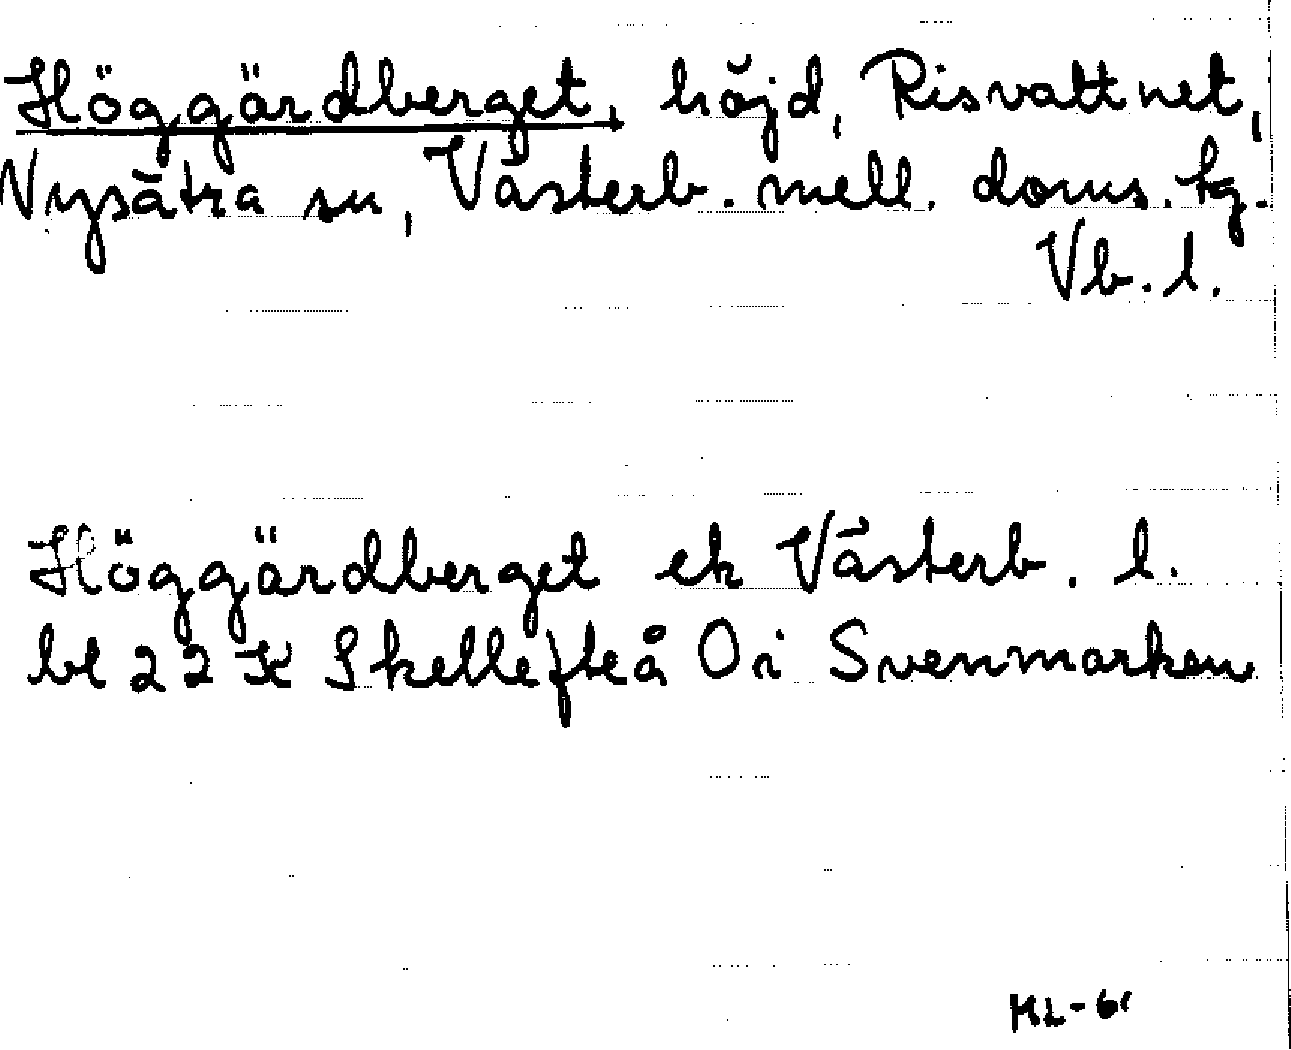 Höggärdberget, höjd, Risvattnet,
Nysätra sn, Västerb. mell. doms. tg.
Vb. l.
Höggärdberget ek Västerb. l.
bl 22 K Skellefteå Or Svenmarken